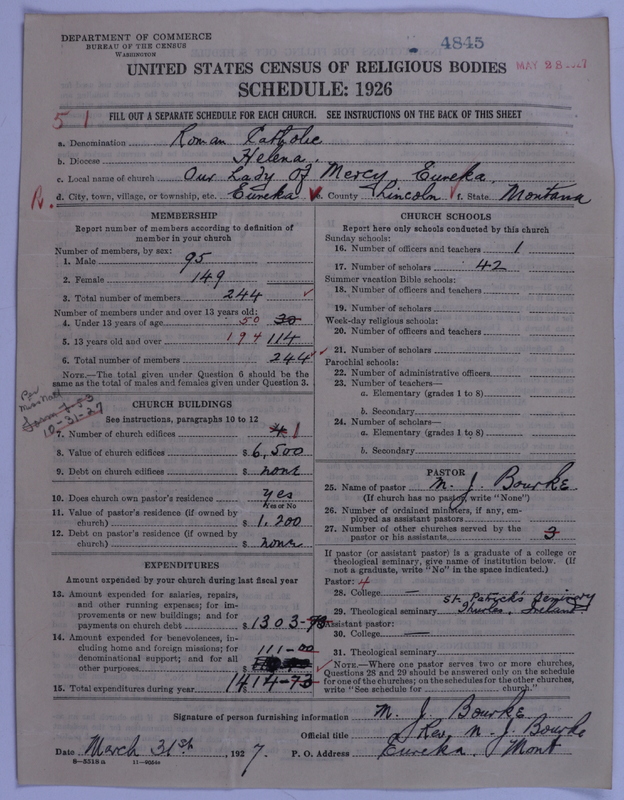 DEPARTMENT OF COMMERCE
BUREAU OF THE CENSUS
WASHINGTON
4845
MAY 28 1927
UNITED STATES CENSUS OF RELIGIOUS BODIES
SCHEDULE: 1926
51
FILL OUT A SEPARATE SCHEDULE FOR EACH CHURCH. SEE INSTRUCTIONS ON THE BACK OF THIS SHEET
a. Denomination Roman Catholic
b. Diocese Helena.
c. Local name of church Our Lady Of Mercy, Eureka.
R. d. City, town, village, or township, etc. Eureka e. County Lincoln f. State Montana
MEMBERSHIP
Report number of members according to definition of
member in your church
Number of members, by sex:
1. Male 95
2. Female 149
3. Total number of members 244
Number of members under and over 13 years old:
4. Under 13 years of age 50 30
5. 13 years old and over 194 114
6. Total number of members 244
NOTE.—The total given under Question 6 should be the
same as the total of males and females given under Question 3.
10-31-27
CHURCH BUILDINGS
See instructions, paragraphs 10 to 12
7. Number of church edifices 4 1
8. Value of church edifices $ 6,500
9. Debt on church edifices $ none
10. Does church own pastor's residence yes
Yes or No
11. Value of pastor's residence (if owned by
church) $ 1,200
12. Debt on pastor's residence (if owned by
church) $ none
EXPENDITURES
Amount expended by your church during last fiscal year
13. Amount expended for salaries, repairs,
and other running expenses; for im-
provements or new buildings; and for
payments on church debt $ 1303-73
14. Amount expended for benevolences, in-
cluding home and foreign missions; for
denominational support; and for all
other purposes 111-00
15. Total expenditures during year $ 1414-73
CHURCH SCHOOLS
Report here only schools conducted by this church
Sunday schools:
16. Number of officers and teachers 1
17. Number of scholars 42
Summer vacation Bible schools:
18. Number of officers and teachers
19. Number of scholars
Week-day religious schools:
20. Number of officers and teachers
21. Number of scholars
Parochial schools:
22. Number of administrative officers
23. Number of teachers—
a. Elementary (grades 1 to 8)
b. Secondary
24. Number of scholars—
a. Elementary (grades 1 to 8)
b. Secondary
PASTOR
25. Name of pastor M. J. Bourke
(If church has no pastor, write "None")
26. Number of ordained ministers, if any, em-
ployed as assistant pastors
27. Number of other churches served by the
pastor or his assistants 3
If pastor (or assistant pastor) is a graduate of a college or
theological seminary, give name of institution below. (If
not a graduate, write "No" in the space indicated.)
Pastor: 4
28. College —
St. Patrick's Seminary
29. Theological seminary Thurles, Ireland
Assistant pastor:
30. College —
31. Theological seminary
NOTE.—Where one pastor serves two or more churches,
Questions 28 and 29 should be answered only on the schedule
for one of the churches; on the schedules for the other churches,
write "See schedule for church."
Signature of person furnishing information M. J. Bourke
Official title Rev. M. J. Bourke
Date March 31st, 1927. P. O. Address Eureka, Mont
8-5518 a 11-9056c